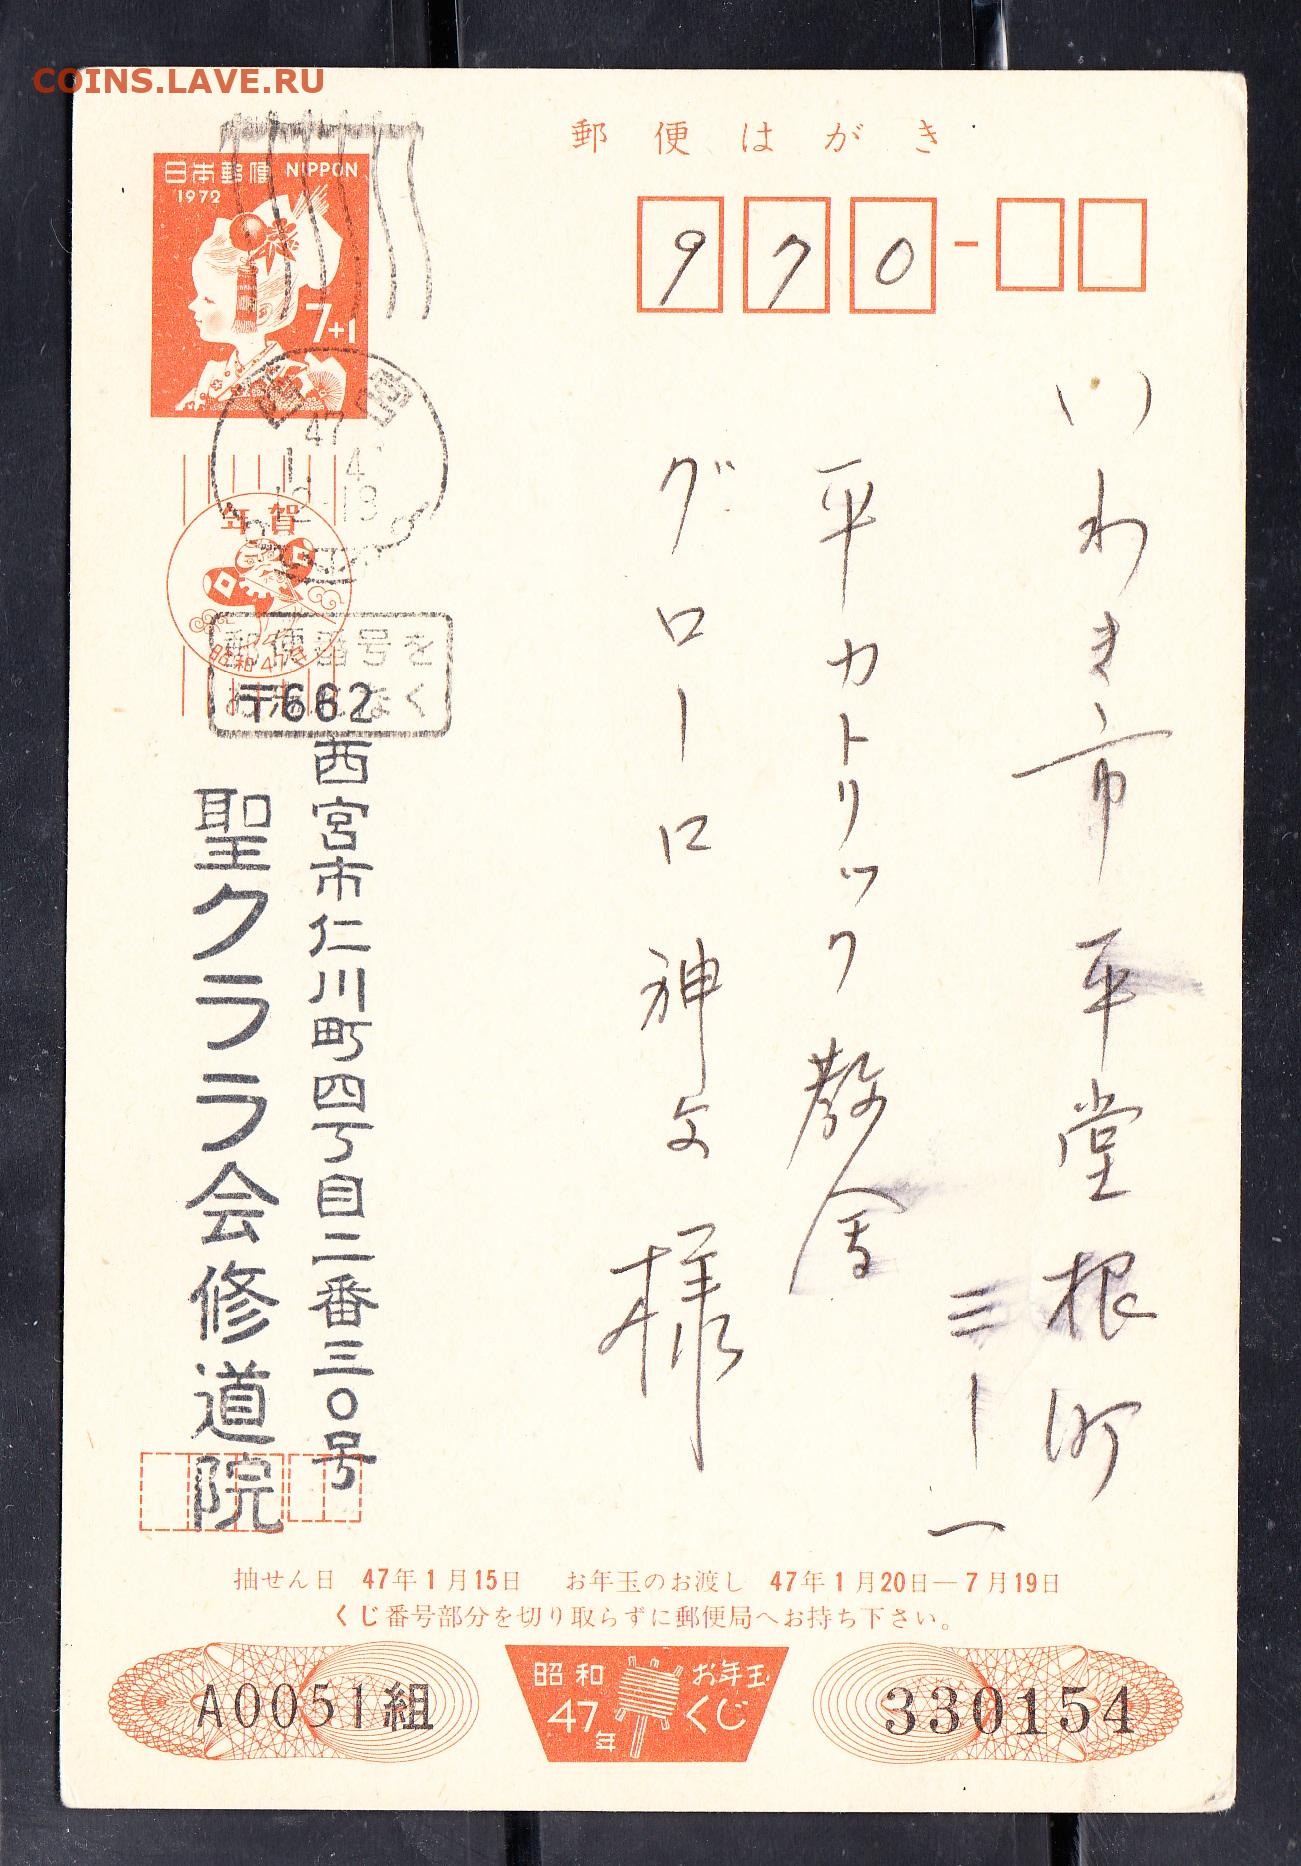 COINS.LAVE.RU
郵便はがき
日本郵便 NIPPON
1972
7+1
970
いわき市平堂根町
三ー一
平カトリック教會
グローロ神父様
西宮
47
1 4
12-18
年賀
昭和47年
郵便番号を
お忘れなく
〒662
西宮市仁川町四丁目二番三〇号
聖クララ会修道院
抽せん日 47年1月15日 お年玉のお渡し 47年1月20日―7月19日
くじ番号部分を切り取らずに郵便局へお持ち下さい。
A0051組
昭和47年 お年玉くじ
330154